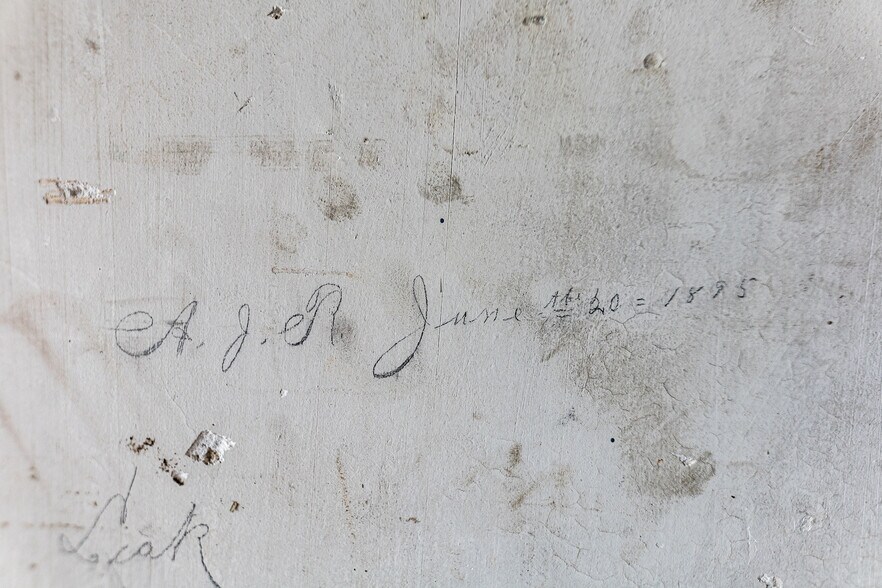 A. J. R. June th 20 = 1895
Leak